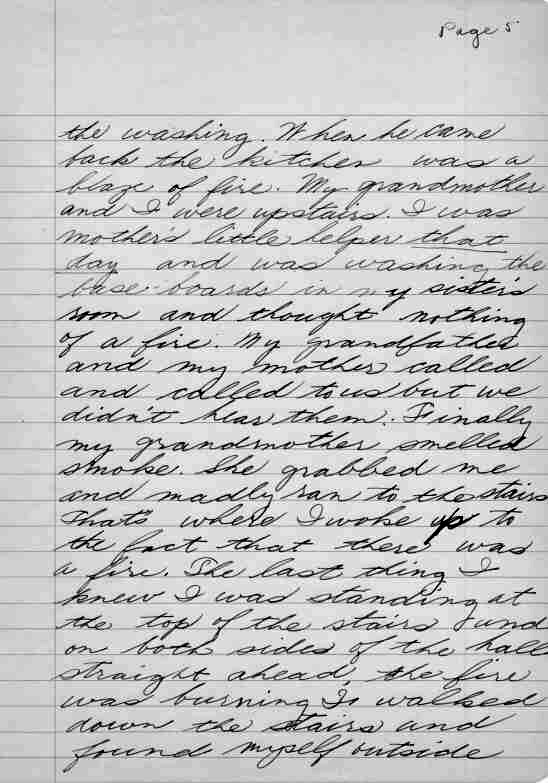 Page 5
the washing. When he came
back the kitchen was a
blaze of fire. My grandmother
and I were upstairs. I was
mother's little helper that
day and was washing the
base-boards in my sister's
room and thought nothing
of a fire. My grandfather
and my mother called
and called to us but we
didn't hear them. Finally
my grandmother smelled
smoke. She grabbed me
and madly ran to the stairs
That's where I woke up to
the fact that there was
a fire. The last thing I
knew I was standing at
the top of the stairs and
on both sides of the hall
straight ahead, the fire
was burning. I walked
down the stairs and
found myself outside